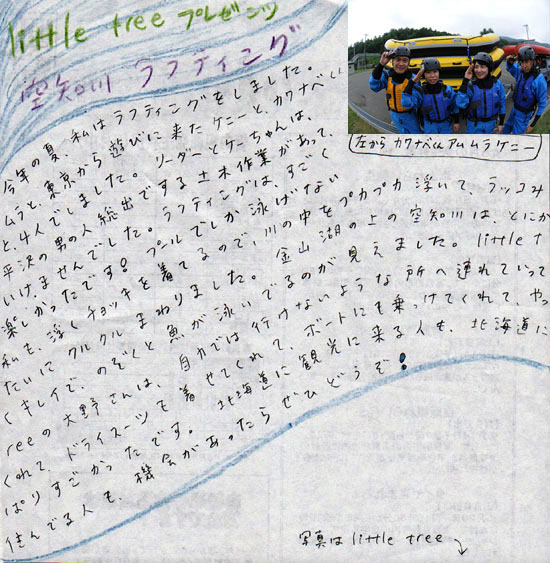 little tree プレゼンツ
空知川 ラフティング
今年の夏、私はラフティングをしました。
ムラと、東京から遊びに来たケニーと、カワナベくん
と、4人でしました。リーダーとケーちゃんは、
平沢の男の人総出でする土木作業があって、
いけませんでした。ラフティングは、すごく
楽しかったです!プールでしか泳げない
私も、浮くチョッキを着てるので、川の中をプカプカ浮いて、ラッコみ
たいにクルクルまわりました。金山湖の上の空知川は、とにか
くキレイで、のぞくと魚が泳いでるのが見えました。little t
reeの大野さんは、自力では行けないような所へ連れていって
くれて、ドライスーツを着せてくれて、ボートにも乗っけてくれて、やっ
ぱりすごかったです。北海道に観光に来る人も、北海道に
住んでる人も、機会があったらぜひどうぞ!
左から カワナベくん アム ムラ ケニー
写真は little tree